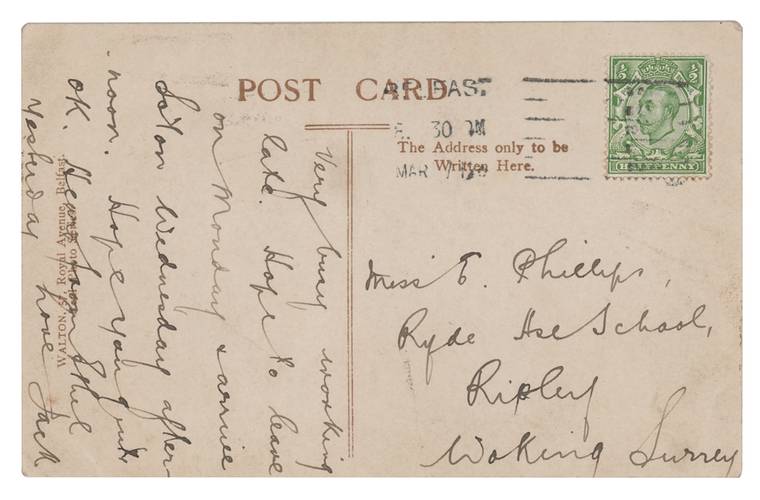 POST CARD
The Address only to be
Written Here.
30 PM
MAR
HALFPENNY
Miss E. Phillips,
Ryde Hse School,
Ripley
Woking Surrey
Very busy working
late. Hope to leave
on Monday & arrive
Wednesday after-
noon. Hope you
OK. Heard from Ethel
yesterday love Jack
WALTON, Royal Avenue, Belfast.